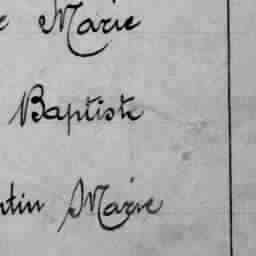 Marie
Baptiste
ntin Marie